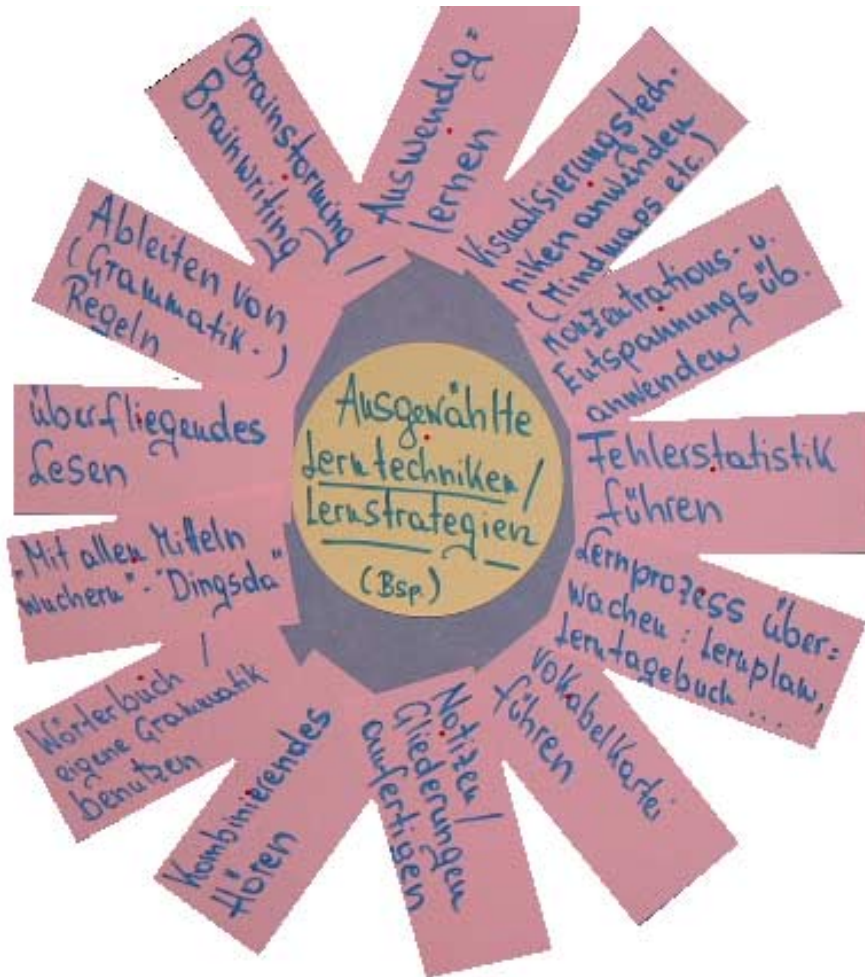 Ausgewählte
Lerntechniken /
Lernstrategien
(Bsp.)
Auswendig=
lernen
Visualisierungstech-
niken anwenden
(Mindmaps etc.)
Konzentrations- u.
Entspannungsüb.
anwenden
Fehlerstatistik
führen
Lernprozess über=
wachen: Lernplan,
Lerntagebuch ...
Vokabelkartei
führen
Notizen /
Gliederungen
anfertigen
Kombinierendes
Hören
Wörterbuch /
eigene Grammatik
benutzen
"Mit allen Mitteln
wuchern" - "Dingsda"
überfliegendes
Lesen
Ableiten von
(Grammatik-)
Regeln
Brainstorming /
Brainwriting